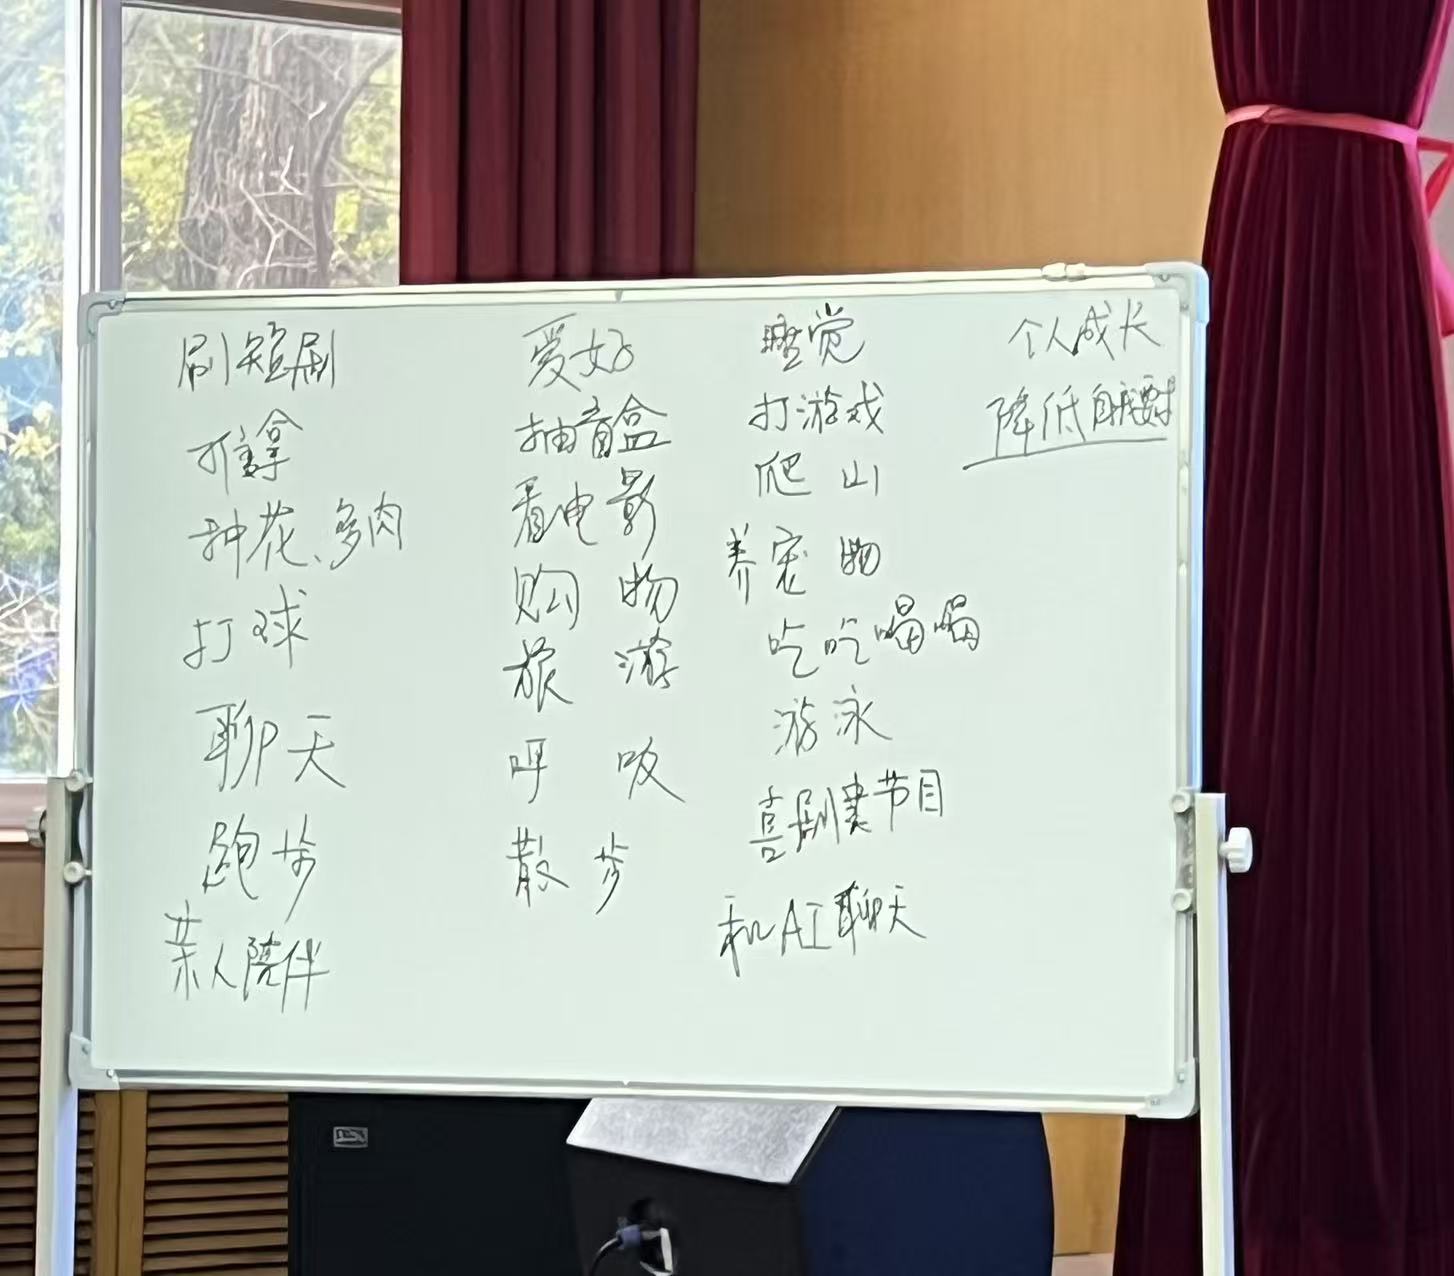 刷短剧
推拿
种花、多肉
打球
聊天
跑步
亲人陪伴
爱好
抽盲盒
看电影
购物
旅游
呼吸
散步
睡觉
打游戏
爬山
养宠物
吃吃喝喝
游泳
喜剧类节目
和AI聊天
个人成长
降低自我要求